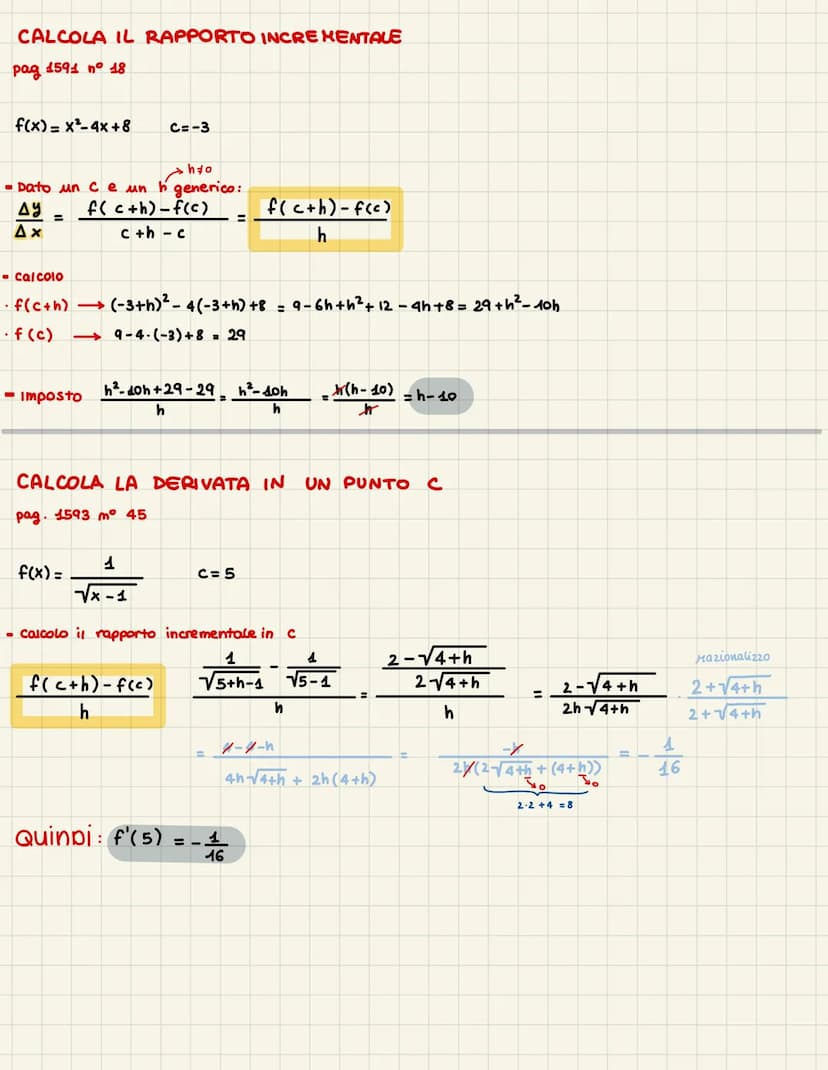 CALCOLA IL RAPPORTO INCREMENTALE
pag 1591 nº 18
f(x) = x²-4x+8 c=-3
h≠0
- Dato un c e un h generico:
Δy/Δx = (f(c+h)-f(c))/(c+h-c) = (f(c+h)-f(c))/h
- calcolo
· f(c+h) → (-3+h)²-4(-3+h)+8 = 9-6h+h²+12-4h+8 = 29+h²-10h
· f(c) → 9-4·(-3)+8 = 29
- Imposto (h²-10h+29-29)/h = (h²-10h)/h = h(h-10)/h = h-10
CALCOLA LA DERIVATA IN UN PUNTO C
pag. 1593 nº 45
f(x) = 1/√(x-1) c=5
- calcolo il rapporto incrementale in c
razionalizzo
(f(c+h)-f(c))/h (1/√(5+h-1) - 1/√(5-1))/h = ((2-√(4+h))/(2√(4+h)))/h = (2-√(4+h))/(2h√(4+h)) · (2+√(4+h))/(2+√(4+h))
= (4-4-h)/(4h√(4+h) + 2h(4+h)) = -h/(2h(2√(4+h) + (4+h))) = -1/16
→0 →0
2·2+4 =8
Quindi: f'(5) = -1/16